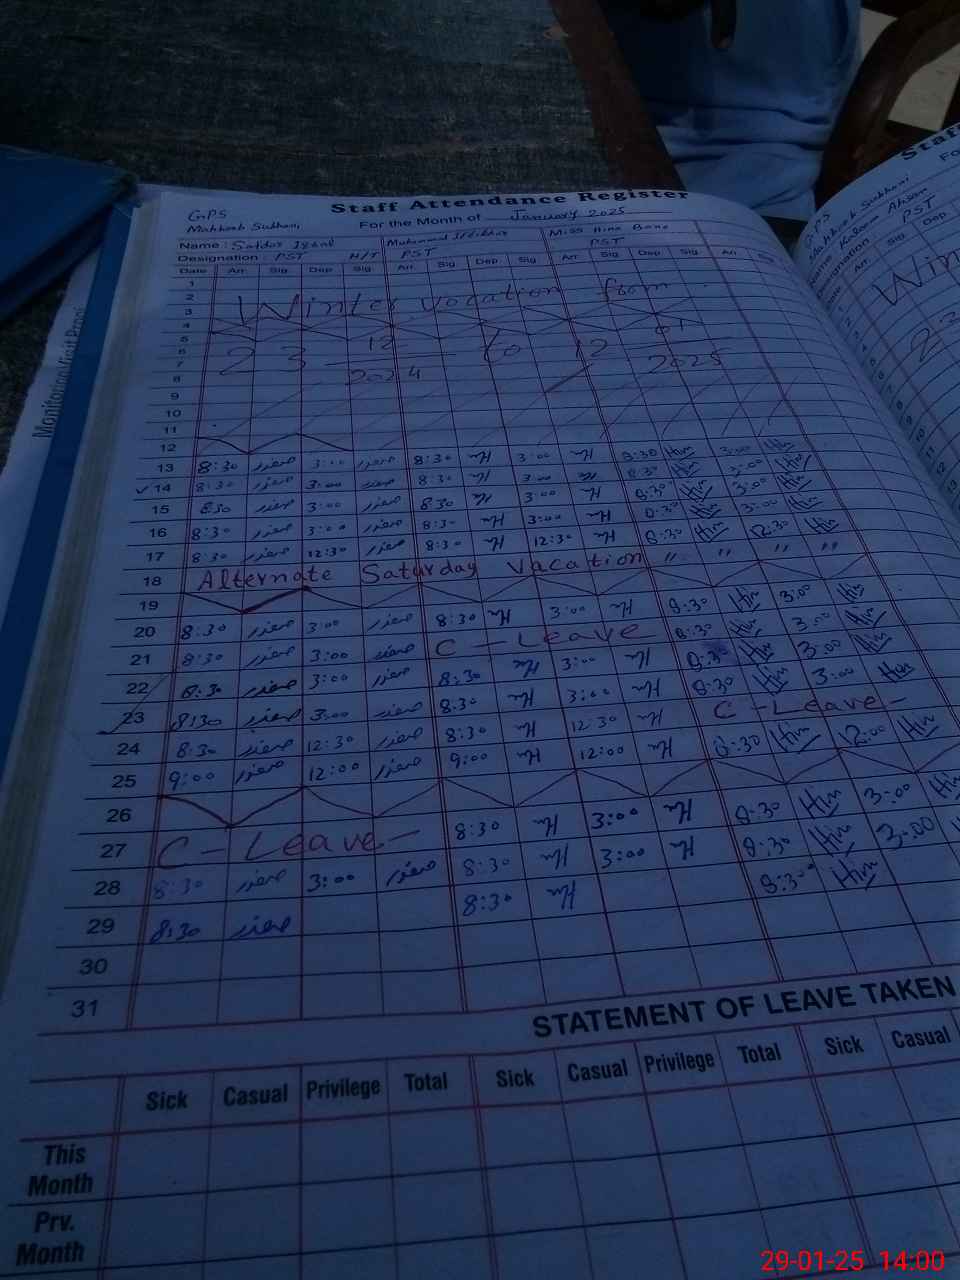 Staff Attendance Register
GPS
Mahboob Subhani
For the Month of January 2025
Name: Safdar Iqbal Muhammad Iftikhar Miss Hina Bano
Designation: PST H/T PST PST
Date Arr. Sig. Dep. Sig. Arr. Sig. Dep. Sig. Arr. Sig. Dep. Sig. Arr.
1
2 Winter vocation from
3
4
5
6 23 12 2024 to 12 01 2025
7
8
9
10
11
12
13 8:30 صفدر 3:00 صفدر 8:30 3:00 8:30 Him 3:00 Him
14 8:30 صفدر 3:00 صفدر 8:30 3:00 8:30 Him 3:00 Him
15 8:30 صفدر 3:00 صفدر 8:30 3:00 8:30 Him 3:00 Him
16 8:30 صفدر 3:00 صفدر 8:30 3:00 8:30 Him 3:00 Him
17 8:30 صفدر 12:30 صفدر 8:30 12:30 8:30 Him 12:30 Him
18 Alternate Saturday Vacation " " " "
19
20 8:30 صفدر 3:00 صفدر 8:30 3:00 8:30 Him 3:00 Him
21 8:30 صفدر 3:00 صفدر C-Leave 8:30 Him 3:00 Him
22 8:30 صفدر 3:00 صفدر 8:30 3:00 8:30 Him 3:00 Him
23 8:30 صفدر 3:00 صفدر 8:30 3:00 8:30 Him 3:00 Him
24 8:30 صفدر 12:30 صفدر 8:30 12:30 C-Leave-
25 9:00 صفدر 12:00 صفدر 9:00 12:00 8:30 Him 12:00 Him
26
27 C-Leave- 8:30 3:00 8:30 Him 3:00 Him
28 8:30 صفدر 3:00 صفدر 8:30 3:00 8:30 Him 3:00
29 8:30 صفدر 8:30 8:30 Him
30
31
STATEMENT OF LEAVE TAKEN
Sick Casual Privilege Total Sick Casual Privilege Total Sick Casual
This Month
Prv. Month
Monitoring Visit Prof
Staf
Fo
Mahboob Subhani
Name Kalsoom Ahsan
Designation PST
Arr. Sig. Dep.
29-01-25 14:00